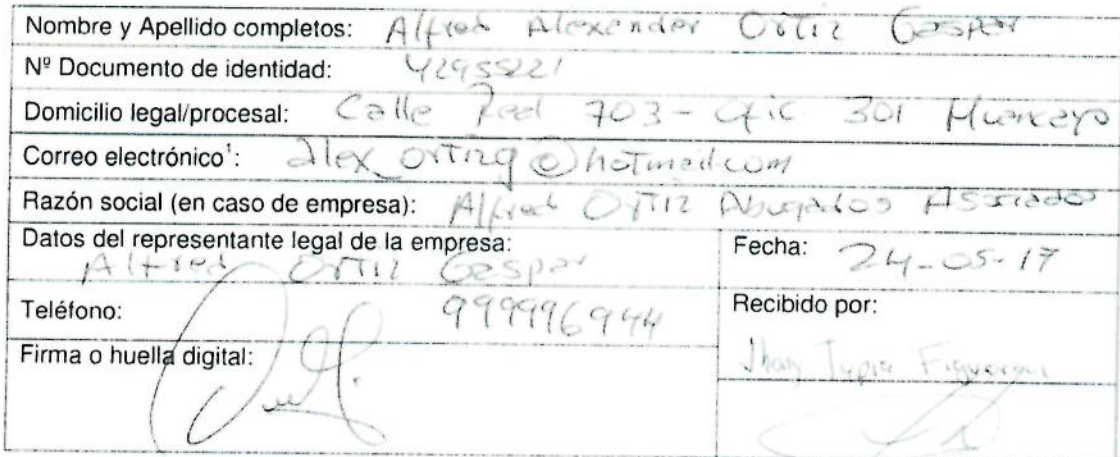 Nombre y Apellido completos: Alfred Alexander Ortiz Gaspar
Nº Documento de identidad: 42955221
Domicilio legal/procesal: Calle Real 703 - Ofic 301 Huancayo
Correo electrónico¹: alex_ortizg@hotmail.com
Razón social (en caso de empresa): Alfred Ortiz Abogados Asociados
Datos del representante legal de la empresa:
Alfred Ortiz Gaspar
Fecha: 24-05-17
Teléfono: 999996944
Recibido por:
Firma o huella digital: